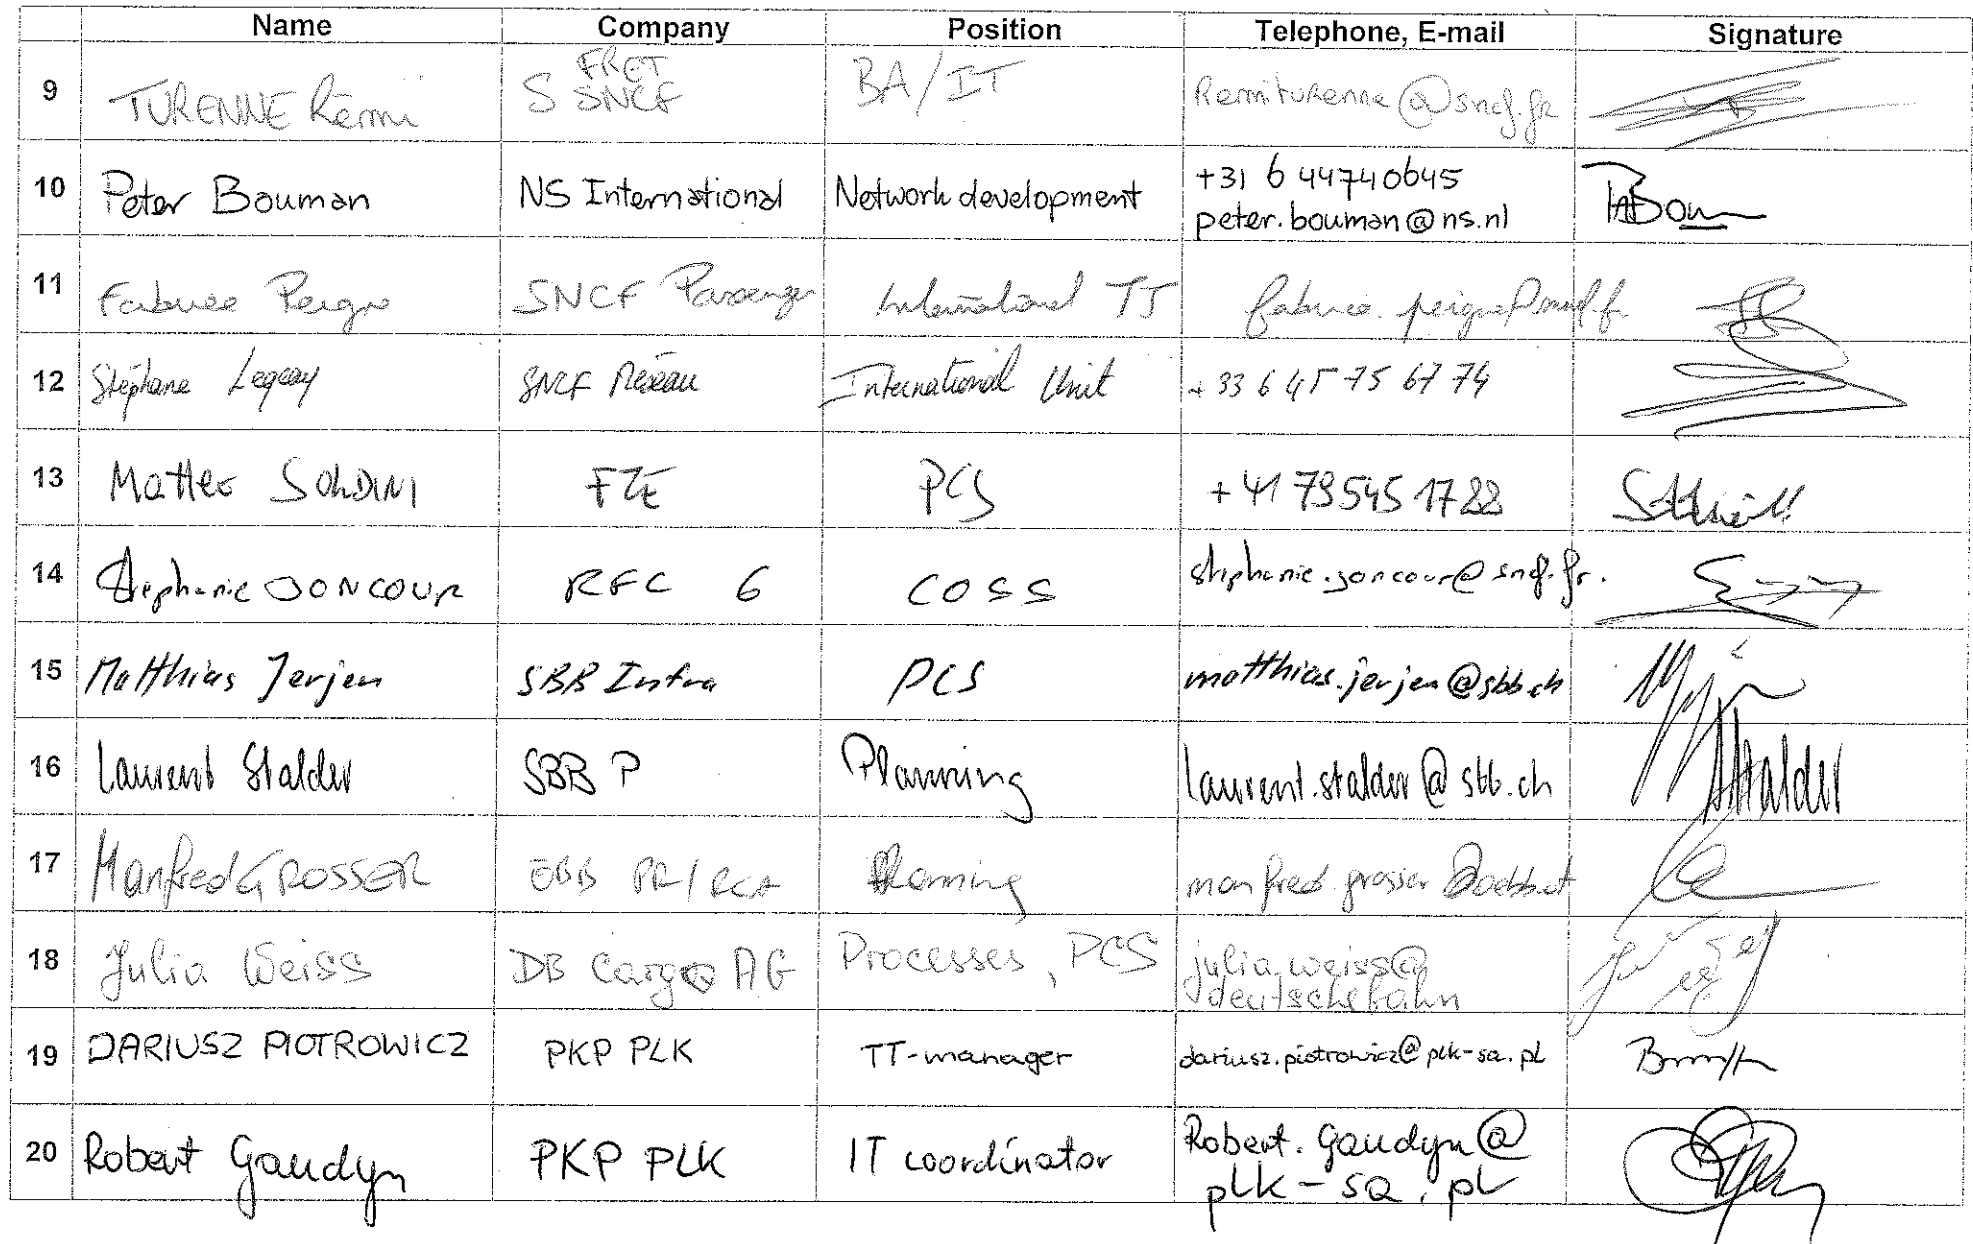 Name Company Position Telephone, E-mail Signature
9 TURENNE Rémi S FRET SNCF BA/IT Remiturenne@sncf.fr
10 Peter Bouman NS International Network development +31 6 44740645
peter.bouman@ns.nl
11 SNCF International TT
12 Stéphane SNCF Réseau International Unit +33 6 45 75 67 74
13 Matteo SOLDINI FTE PCS +41 79 545 17 22
14 Stéphanie JONCOUR RFC 6 COSS stephanie.joncour@sncf.fr.
15 Matthias Jerjen SBB Infra PCS matthias.jerjen@sbb.ch
16 Laurent Stalder SBB P Planning laurent.stalder@sbb.ch
17 Manfred GROSSER ÖBB PR/RCA Planning
18 Julia Weiss DB Cargo AG Processes, PCS julia.weiss@
deutschebahn
19 DARIUSZ PIOTROWICZ PKP PLK TT-manager dariusz.piotrowicz@plk-sa.pl
20 Robert Gaudyn PKP PLK IT coordinator Robert.Gaudyn@
plk-sa.pl